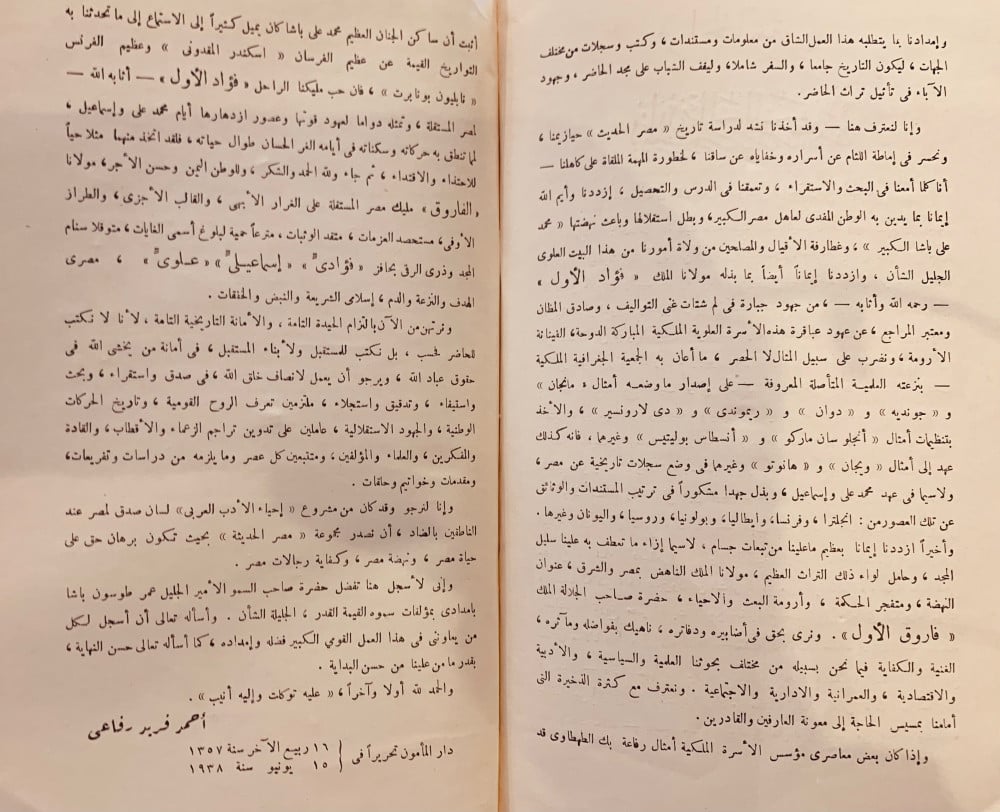 وإمدادنا بما يتطلبه هذا العمل الشاق من معلومات ومستندات ، وكتب وسجلات من مختلف
الجهات ، ليكون التاريخ جامعا ، والسفر شاملا، وليقف الشباب على مجد الحاضر ، وجهود
الآباء فى تأثيل تراث الحاضر .
وإنا لنعترف هنا — وقد أخذنا نشد لدراسة تاريخ « مصر الحديث » حيازيمنا ،
ونحسر فى إماطة اللثام عن أسراره وخفاياه عن ساقنا ، لخطورة المهمة الملقاة على كاهلنا —
أنا كلما أمعنا فى البحث والاستقراء ، وتعمقنا فى الدرس والتحصيل ، إزددنا وأيم الله
إيمانا بما يدين به الوطن المفدى لعاهل مصر الكبير، وبطل استقلالها وباعث نهضتها « محمد
على باشا الكبير » ، وغطارفة الأقيال والمصلحين من ولاة أمورنا من هذا البيت العلوى
الجليل الشأن ، وازددنا إيماناً أيضاً بما بذله مولانا الملك « فؤاد الأول »
— رحمه الله وأثابه — ، من جهود جبارة فى لم شتات غنى التواليف ، وصادق المظان
ومعتبر المراجع ، عن عهود عباقرة هذه الأسرة العلوية الملكية المباركة الدوحة، الفينانة
الأرومة ، ونضرب على سبيل المثال لا الحصر ، ما أعان به الجمعية الجغرافية الملكية
— بنزعته العلمية المتأصلة المعروفة — على إصدار ما وضعه أمثال « مانجان »
و « جونديه » و « دوان » و « ريموندى » و « دى لارونسير » ، والأخذ
بتنظيمات أمثال « أنجلو سان ماركو » و « أنسطاس بوليتيس » وغيرهما ، فانه كذلك
عهد إلى أمثال « ويجان » و « هانوتو » وغيرهما فى وضع سجلات تاريخية عن مصر ،
ولاسيما فى عهد محمد على وإسماعيل ، وبذل جهدا مشكوراً فى ترتيب المستندات والوثائق
عن تلك العصور من : انجلترا ، وفرنسا، وايطاليا، وبولونيا، وروسيا، واليونان وغيرها .
وأخيراً ازددنا إيمانا بعظيم ماعلينا من تبعات جسام ، لاسيما إزاء ما تعطف به علينا سليل
المجد ، وحامل لواء ذلك التراث العظيم ، مولانا الملك الناهض بمصر والشرق ، عنوان
النهضة ، ومتفجر الحكمة ، وأرومة البعث والاحياء ، حضرة صاحب الجلالة الملك
« فاروق الأول » . ونرى بحق فى أضابيره ودفاتره ، ناهيك بفواضله ومآثره ،
الغنية والكفاية فيما نحن بسبيله من مختلف بحوثنا العلمية والسياسية ، والأدبية
والاقتصادية ، والعمرانية والادارية والاجتماعية . ونعترف مع كثرة الذخيرة التى
أمامنا بمسيس الحاجة إلى معونة العارفين والقادرين .
وإذا كان بعض معاصرى مؤسس الأسرة الملكية أمثال رفاعة بك الطهطاوى قد
أثبت أن ساكن الجنان العظيم محمد على باشا كان يميل كثيراً إلى الاستماع إلى ما تحدثنا به
التواريخ القيمة عن عظيم الفرسان « اسكندر المقدونى » وعظيم الفرنس
« نابليون بونابرت » ، فان حب مليكنا الراحل « فؤاد الأول » — أثابه الله —
لمصر المستقلة ، وتمثله دواما لعهود قوتها وعصور ازدهارها أيام محمد على وإسماعيل ،
لما تنطق به حركاته وسكناته فى أيامه الغر الحسان طوال حياته ، فلقد اتخذ منهما مثلا حياً
للاحتذاء والاقتداء ، ثم جاء ولله الحمد والشكر ، وللوطن اليمن وحسن الأجر، مولانا
« الفاروق » مليك مصر المستقلة على الغرار الأبهى ، والقالب الأجزى ، والطراز
الأوفى، مستحصد العزمات ، متقد الوثبات ، مترعاً حمية لبلوغ أسمى الغايات ، متوقلا سنام
المجد وذرى الرق بحافز « فؤادى » « إسماعيلى » « علوى » ، مصرى
الهدف والنزعة والدم ، إسلامى الشريعة والنبض والخلقات .
ونرتهن من الآن بالتزام الحيدة التامة ، والأمانة التاريخية التامة ، لأنا لا نكتب
للحاضر فحسب ، بل نكتب للمستقبل ولأبناء المستقبل ، فى أمانة من يخشى الله فى
حقوق عباد الله ، ويرجو أن يعمل لانصاف خلق الله ، فى صدق واستقراء ، وبحث
واستيفاء ، وتدقيق واستجلاء ، ملتزمين تعرف الروح القومية ، وتاريخ الحركات
الوطنية ، والجهود الاستقلالية ، عاملين على تدوين تراجم الزعماء والأقطاب، والقادة
والمفكرين ، والعلماء والمؤلفين، ومتتبعين كل عصر وما يلزمه من دراسات وتفريعات،
ومقدمات وخواتيم وحلقات .
وإنا لنرجو وقد كان من مشروع « إحياء الأدب العربى» لسان صدق لمصر عند
الناطقين بالضاد ، أن تصدر مجموعة « مصر الحديثة » بحيث تكون برهان حق على
حياة مصر ، ونهضة مصر ، وكفاية رجالات مصر .
وإنى لأسجل هنا تفضل حضرة صاحب السمو الأمير الجليل عمر طوسون باشا
بامدادى بمؤلفات سموه القيمة القدر ، الجليلة الشأن . وأسأله تعالى أن أسجل لكل
من يعاوننى فى هذا العمل القومى الكبير فضله وإمداده ، كما أسأله تعالى حسن النهاية ،
بقدر ما من علينا من حسن البداية .
والحمد لله أولا وآخراً ، « عليه توكلت وإليه أنيب » .
أحمد فريد رفاعى
دار المأمون تحريراً فى { ١٦ ربيع الآخر سنة ١٣٥٧
١٥ يونيو سنة ١٩٣٨